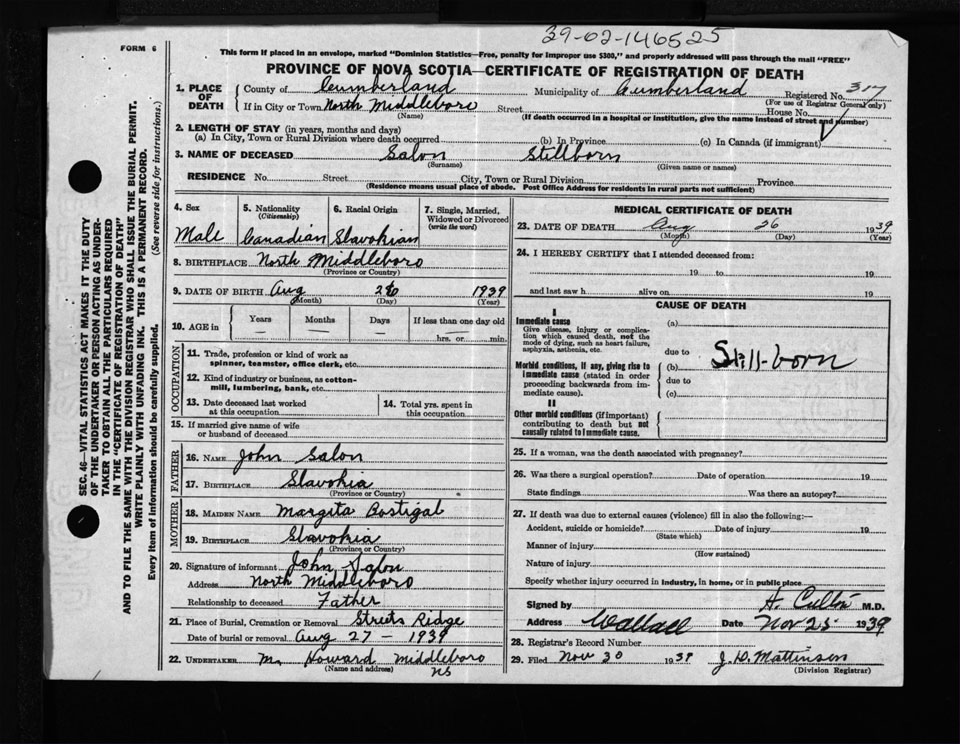 39-02-146525
FORM 6
This form if placed in an envelope, marked "Dominion Statistics—Free, penalty for improper use $300," and properly addressed will pass through the mail "FREE"
PROVINCE OF NOVA SCOTIA—CERTIFICATE OF REGISTRATION OF DEATH
SEC. 46—VITAL STATISTICS ACT MAKES IT THE DUTY
OF THE UNDERTAKER OR PERSON ACTING AS UNDER-
TAKER TO OBTAIN ALL THE PARTICULARS REQUIRED
IN THE "CERTIFICATE OF REGISTRATION OF DEATH"
AND TO FILE THE SAME WITH THE DIVISION REGISTRAR WHO SHALL ISSUE THE BURIAL PERMIT.
WRITE PLAINLY WITH UNFADING INK. THIS IS A PERMANENT RECORD.
Every item of information should be carefully supplied. (See reverse side for instructions.)
1. PLACE OF DEATH County of Cumberland Municipality of Cumberland Registered No. 317
(For use of Registrar General only)
If in City or Town North Middleboro Street House No.
(Name) (If death occurred in a hospital or institution, give the name instead of street and number)
2. LENGTH OF STAY (in years, months and days)
(a) In City, Town or Rural Division where death occurred (b) In Province (c) In Canada (if immigrant)
3. NAME OF DECEASED Salon Stillborn
(Surname) (Given name or names)
RESIDENCE No. Street City, Town or Rural Division Province
(Residence means usual place of abode. Post Office Address for residents in rural parts not sufficient)
4. Sex 5. Nationality (Citizenship) 6. Racial Origin 7. Single, Married, Widowed or Divorced (write the word)
Male Canadian Slavokian
8. BIRTHPLACE North Middleboro
(Province or Country)
9. DATE OF BIRTH Aug 26 1939
(Month) (Day) (Year)
10. AGE in Years Months Days If less than one day old
— — — hrs. or min.
OCCUPATION
11. Trade, profession or kind of work as
spinner, teamster, office clerk, etc.
12. Kind of industry or business, as cotton-
mill, lumbering, bank, etc.
13. Date deceased last worked at this occupation 14. Total yrs. spent in this occupation
15. If married give name of wife
or husband of deceased
FATHER
16. NAME John Salon
17. BIRTHPLACE Slavokia
(Province or Country)
MOTHER
18. MAIDEN NAME Margita Bostigal
19. BIRTHPLACE Slavokia
(Province or Country)
20. Signature of informant John Salon
Address North Middleboro
Relationship to deceased Father
21. Place of Burial, Cremation or Removal Streets Ridge
Date of burial or removal Aug 27 - 1939
22. UNDERTAKER M. Howard Middleboro
(Name and address) NS
MEDICAL CERTIFICATE OF DEATH
23. DATE OF DEATH Aug 26 1939
(Month) (Day) (Year)
24. I HEREBY CERTIFY that I attended deceased from:
19 to 19
and last saw h alive on 19
CAUSE OF DEATH
I
Immediate cause
Give disease, injury or complica-
tion which caused death, not the
mode of dying, such as heart failure,
asphyxia, asthenia, etc.
(a)
due to
Morbid conditions, if any, giving rise to
immediate cause (stated in order
proceeding backwards from im-
mediate cause).
(b) Still-born
due to
(c)
II
Other morbid conditions (if important)
contributing to death but not
causally related to immediate cause.
25. If a woman, was the death associated with pregnancy?
26. Was there a surgical operation? Date of operation 19
State findings Was there an autopsy?
27. If death was due to external causes (violence) fill in also the following:—
Accident, suicide or homicide? Date of injury 19
(State which)
Manner of injury
(How sustained)
Nature of injury
Specify whether injury occurred in industry, in home, or in public place
Signed by A. Cullen M.D.
Address Wallace Date Nov 25 1939
28. Registrar's Record Number
29. Filed Nov 30 1939 J. D. Mattinson
(Division Registrar)